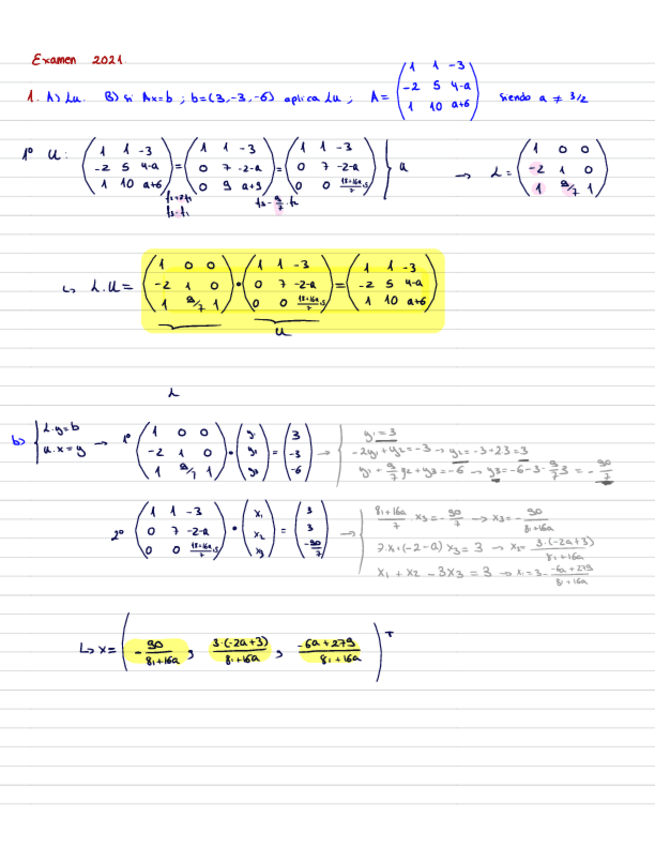 Examen 2021.
1. A) Lu. B) si Ax=b ; b=(3,-3,-6) aplica Lu ; A= (1 1 -3 / -2 5 4-a / 1 10 a+6) siendo a ≠ 3/2
1º U: (1 1 -3 / -2 5 4-a / 1 10 a+6) = (1 1 -3 / 0 7 -2-a / 0 9 a+9) = (1 1 -3 / 0 7 -2-a / 0 0) } u → L = (1 0 0 / -2 1 0 / 1 9/7 1)
f2+2f1 f3-9/7·f2
f3-f1
↳ L.U = (1 0 0 / -2 1 0 / 1 9/7 1) · (1 1 -3 / 0 7 -2-a / 0 0) = (1 1 -3 / -2 5 4-a / 1 10 a+6)
u
L
b) { L.y=b / u.x=y → 1º (1 0 0 / -2 1 0 / 1 9/7 1) · (y1 / y2 / y3) = (3 / -3 / -6) → { y1=3
-2y1+y2=-3 → y2=-3+23=3
y1+9/7y2+y3=-6 → y3=-6-3-9/7 3 = -90/7
2º (1 1 -3 / 0 7 -2-a / 0 0) · (x1 / x2 / x3) = (3 / 3 / -90/7) → { 81+16a/7 · x3 = -90/7 → x3 = -90/81+16a
7·x+(-2-a) x3 = 3 → x2= 3·(-2a+3)/81+16a
x1 + x2 - 3x3 = 3 → x1=3- -6a+279/81+16a
↳ x= (-90/81+16a , 3·(-2a+3)/81+16a , -6a+279/81+16a)T